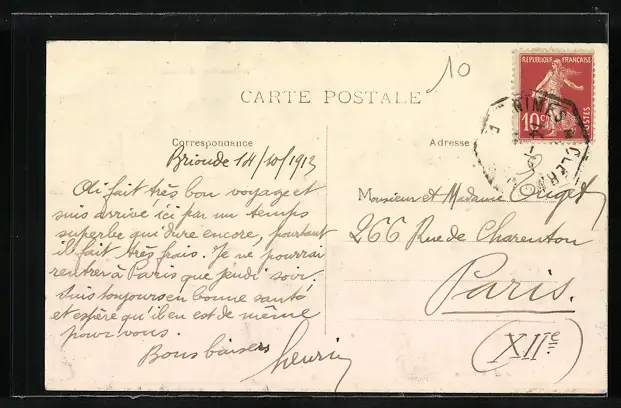 10
CARTE POSTALE
REPUBLIQUE FRANÇAISE
10c POSTES
NIMES A CLERMONT
Correspondance
Adresse
Brioude 14/10/1913
Ai fait très bon voyage et
suis arrivé ici par un temps
superbe qui dure encore, pourtant
il fait très frais. Je ne pourrai
rentrer à Paris que jeudi soir,
suis toujours en bonne santé
et espère qu'il en est de même
pour vous.
Bons baisers
Henri
Monsieur et Madame
266 Rue de Charenton
Paris.
XIIe